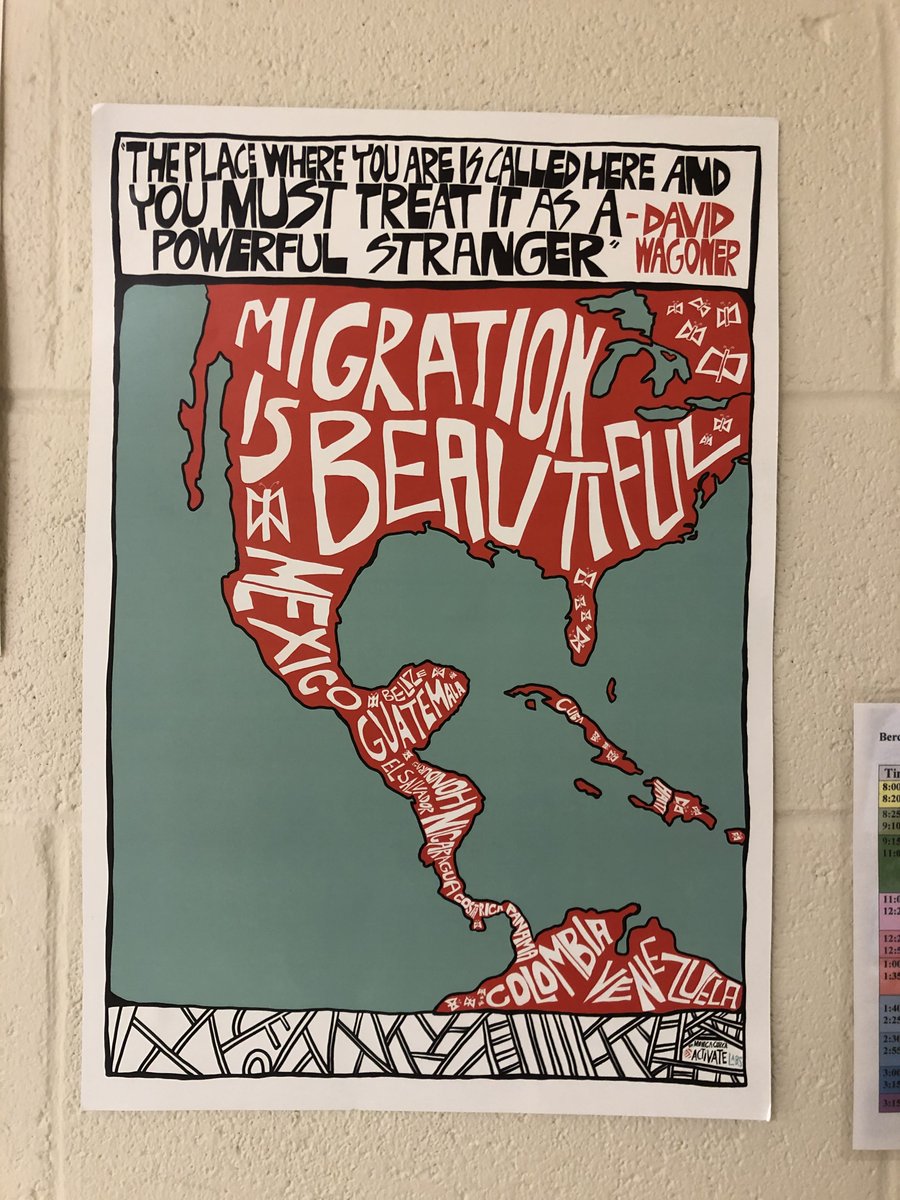 "THE PLACE WHERE YOU ARE IS CALLED HERE AND
YOU MUST TREAT IT AS A
POWERFUL STRANGER"
- DAVID
WAGONER
MIGRATION
IS BEAUTIFUL
MEXICO
BELIZE
GUATEMALA
EL SALVADOR
HONDURAS
NICARAGUA
COSTA RICA
PANAMA
COLOMBIA
VENEZUELA
CUBA
HAITI
ACTIVATE LABS
Berc
Tim
8:00
8:20
8:25
9:10
9:15
11:0
11:0
12:2
12:2
12:5
1:00
1:35
1:40
2:25
2:30
2:55
3:00
3:15
3:15